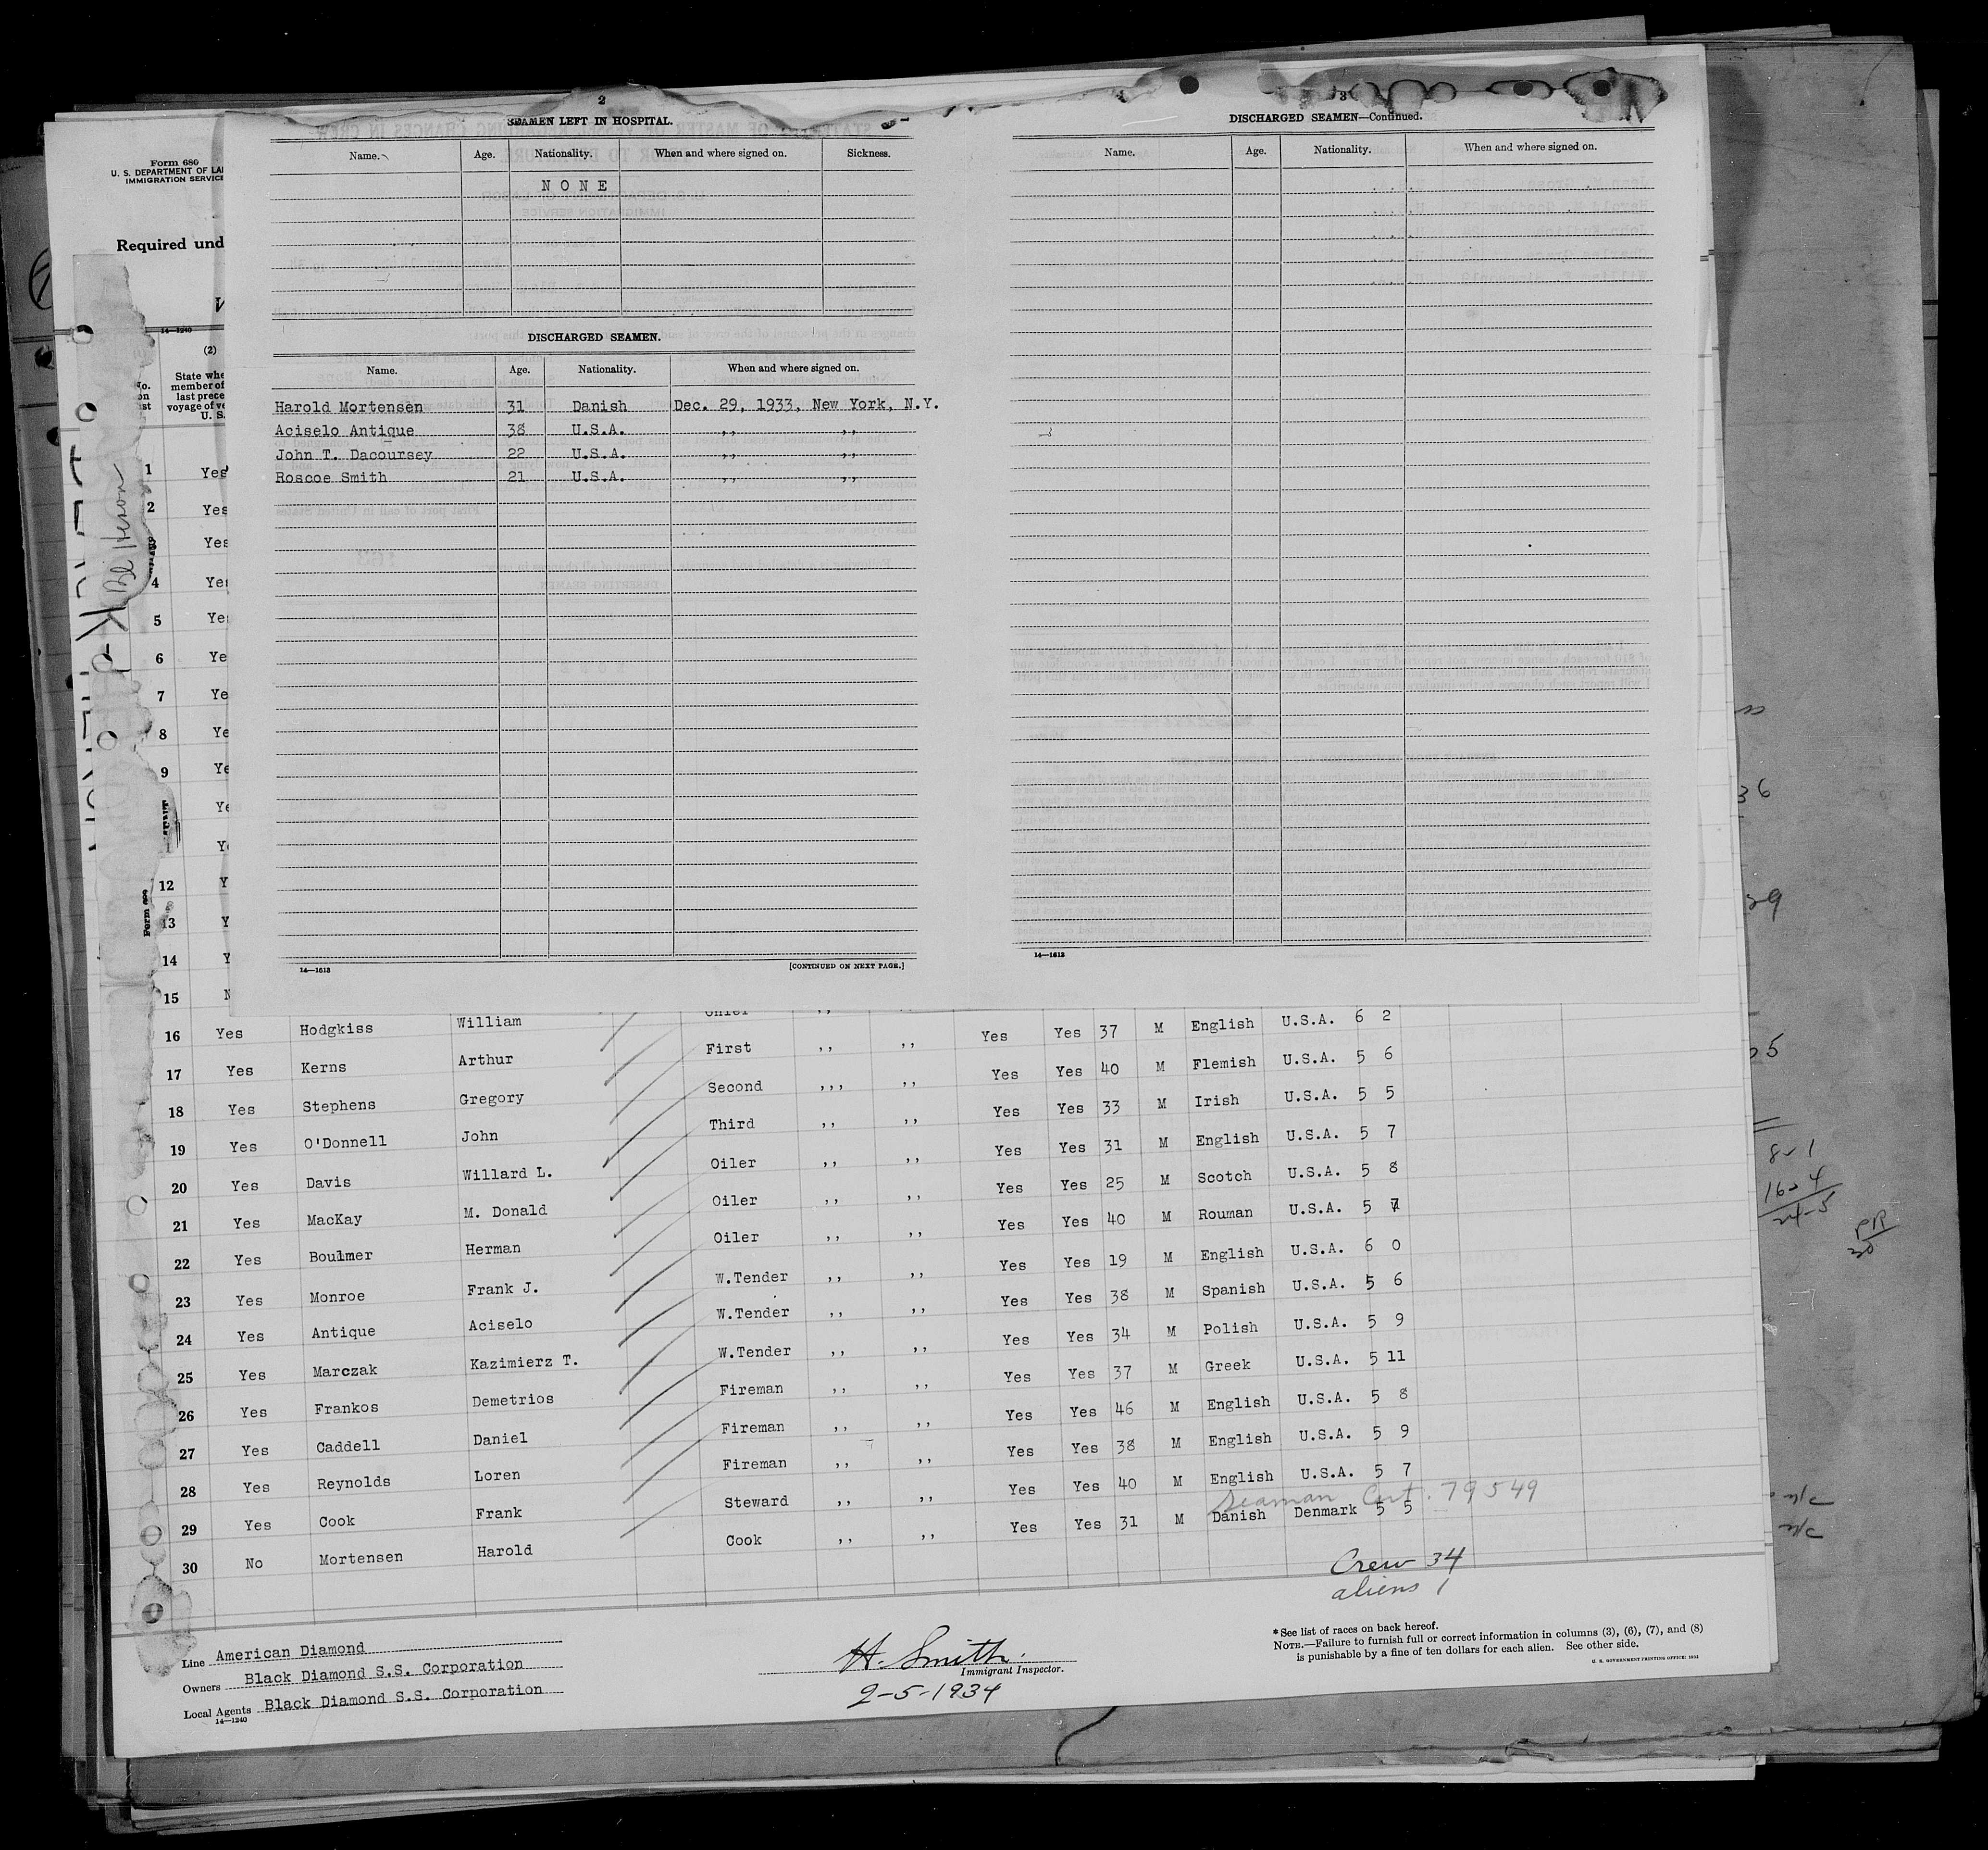 2
SEAMEN LEFT IN HOSPITAL.
Name. Age. Nationality. When and where signed on. Sickness.
NONE
DISCHARGED SEAMEN.
Name. Age. Nationality. When and where signed on.
Harold Mortensen 31 Danish Dec. 29, 1933, New York, N.Y.
Aciselo Antique 38 U.S.A. ,, ,,
John T. Dacoursey 22 U.S.A. ,, ,,
Roscoe Smith 21 U.S.A. ,, ,,
14—1613 [CONTINUED ON NEXT PAGE.]
3
DISCHARGED SEAMEN—Continued.
Name. Age. Nationality. When and where signed on.
14—1613
Form 680
U. S. DEPARTMENT OF LA
IMMIGRATION SERVICE
Required und
14—1240
(2)
State whe
member of
last prece
voyage of ve
U. S.
1 Yes
2 Yes
Yes
4 Yes
5 Ye
6 Ye
7 Ye
8 Ye
9 Ye
Ye
Y
12 Y
13 Y
14 Y
15 N
16 Yes Hodgkiss William Chief ,, ,,
17 Yes Kerns Arthur First ,, ,, Yes Yes 37 M English U.S.A. 6 2
18 Yes Stephens Gregory Second ,,, ,, Yes Yes 40 M Flemish U.S.A. 5 6
19 Yes O'Donnell John Third ,, ,, Yes Yes 33 M Irish U.S.A. 5 5
20 Yes Davis Willard L. Oiler ,, ,, Yes Yes 31 M English U.S.A. 5 7
21 Yes MacKay M. Donald Oiler ,, ,, Yes Yes 25 M Scotch U.S.A. 5 8
22 Yes Boulmer Herman Oiler ,, ,, Yes Yes 40 M Rouman U.S.A. 5 7
23 Yes Monroe Frank J. W.Tender ,, ,, Yes Yes 19 M English U.S.A. 6 0
24 Yes Antique Aciselo W.Tender ,, ,, Yes Yes 38 M Spanish U.S.A. 5 6
25 Yes Marczak Kazimierz T. W.Tender ,, ,, Yes Yes 34 M Polish U.S.A. 5 9
26 Yes Frankos Demetrios Fireman ,, ,, Yes Yes 37 M Greek U.S.A. 5 11
27 Yes Caddell Daniel Fireman ,, ,, Yes Yes 46 M English U.S.A. 5 8
28 Yes Reynolds Loren Fireman ,, ,, Yes Yes 38 M English U.S.A. 5 9
29 Yes Cook Frank Steward ,, ,, Yes Yes 40 M English U.S.A. 5 7
Seaman Cert. 79549
30 No Mortensen Harold Cook ,, ,, Yes Yes 31 M Danish Denmark 5 5
Crew 34
aliens 1
Line American Diamond
Owners Black Diamond S.S. Corporation
Local Agents Black Diamond S.S. Corporation
14—1240
H. Smith.
Immigrant Inspector.
2-5-1934
*See list of races on back hereof.
NOTE.—Failure to furnish full or correct information in columns (3), (6), (7), and (8)
is punishable by a fine of ten dollars for each alien. See other side.
U. S. GOVERNMENT PRINTING OFFICE: 1932
36
29
8-1
16-4
24-5
PR
30